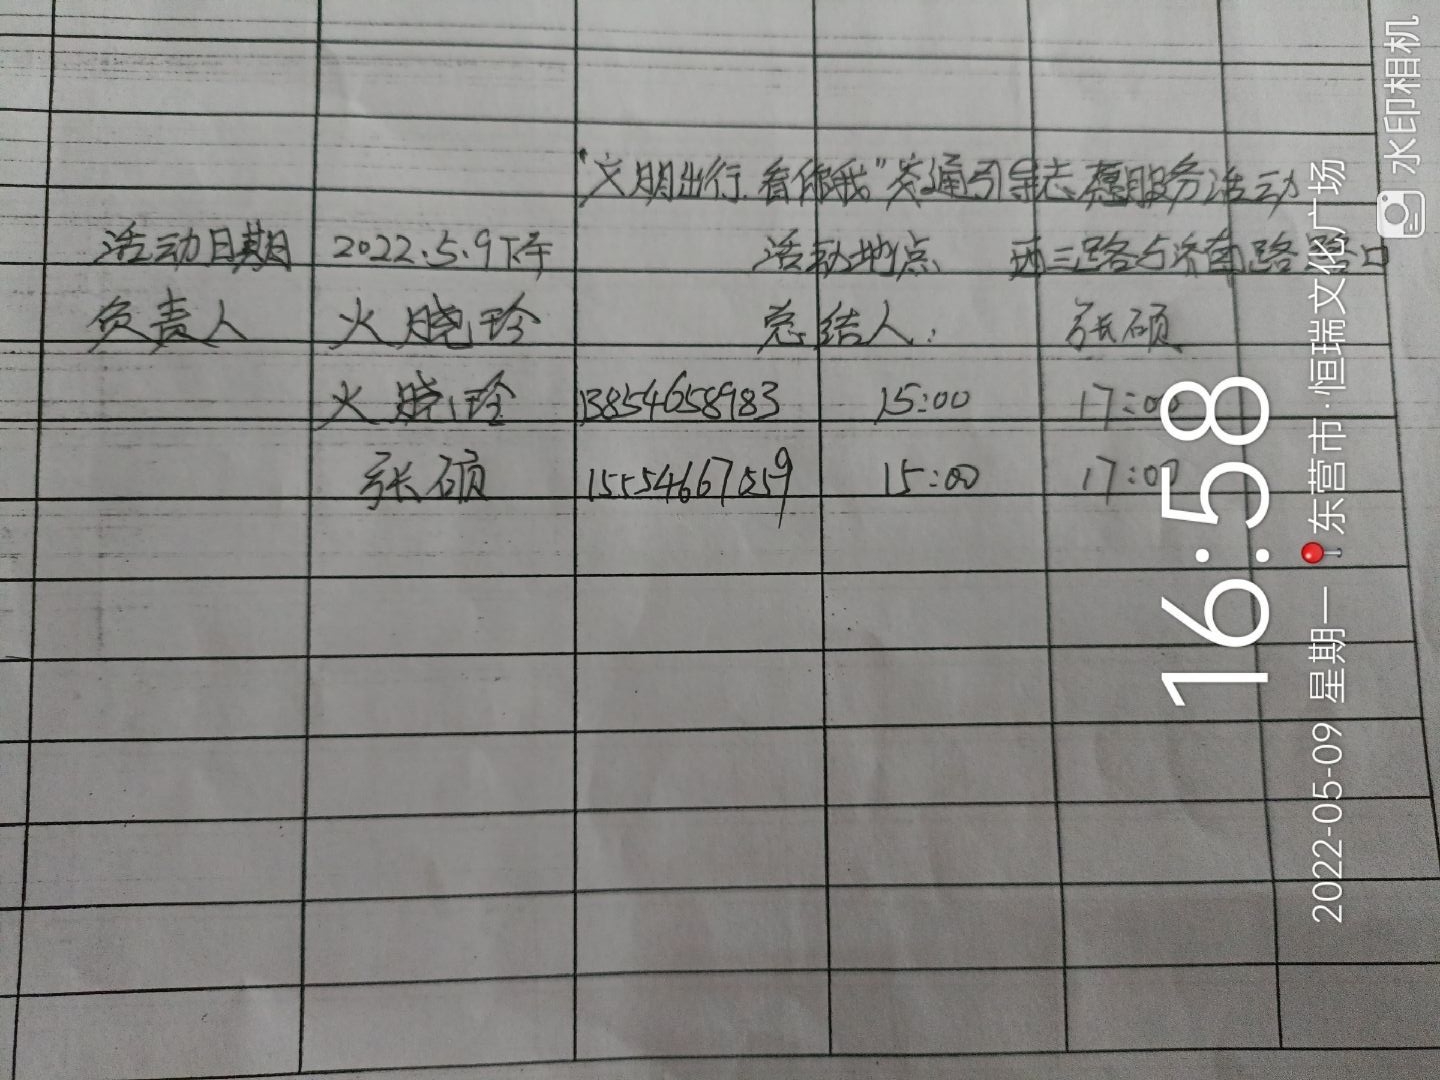 “文明出行.看你我”交通引导志愿服务活动
活动日期 2022.5.9下午 活动地点 西三路与济南路路口
负责人 火晓玲 总结人: 张硕
火晓玲 13854658983 15:00 17:00
张硕 15554667059 15:00 17:00
16:58
2022-05-09 星期一 东营市·恒瑞文化广场
水印相机